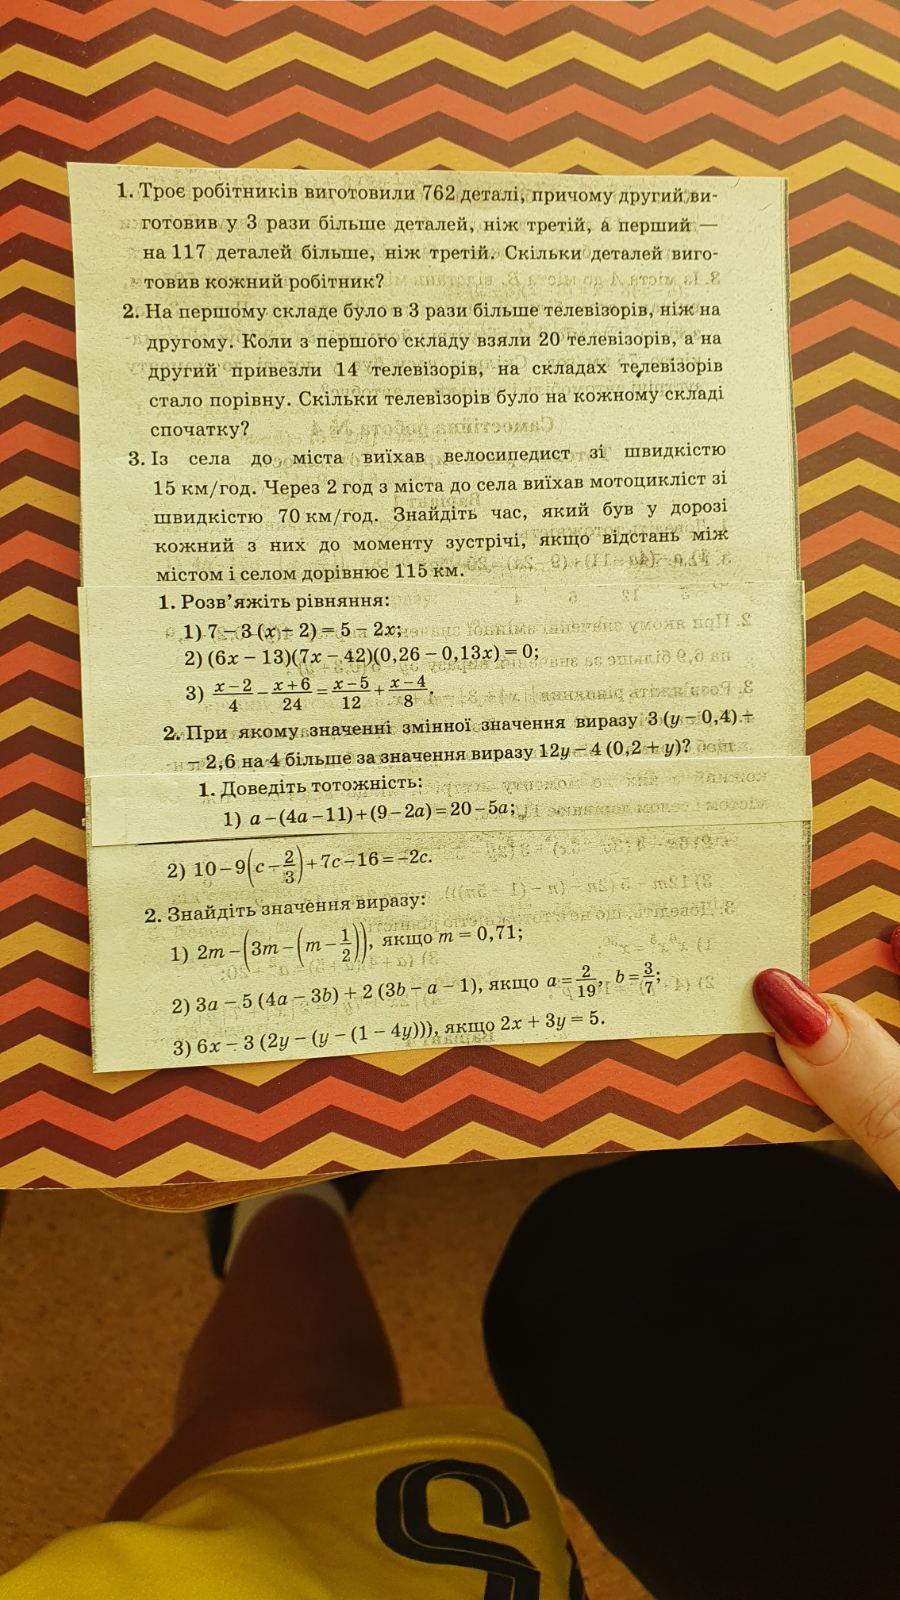 1. Троє робітників виготовили 762 деталі, причому другий ви-
готовив у 3 рази більше деталей, ніж третій, а перший —
на 117 деталей більше, ніж третій. Скільки деталей виго-
товив кожний робітник?
2. На першому складе було в 3 рази більше телевізорів, ніж на
другому. Коли з першого складу взяли 20 телевізорів, а на
другий привезли 14 телевізорів, на складах телевізорів
стало порівну. Скільки телевізорів було на кожному складі
спочатку?
3. Із села до міста виїхав велосипедист зі швидкістю
15 км/год. Через 2 год з міста до села виїхав мотоцикліст зі
швидкістю 70 км/год. Знайдіть час, який був у дорозі
кожний з них до моменту зустрічі, якщо відстань між
містом і селом дорівнює 115 км.
1. Розв’яжіть рівняння:
1) 7 − 3 (x + 2) = 5 − 2x;
2) (6x − 13)(7x − 42)(0,26 − 0,13x) = 0;
3) (x−2)/4 − (x+6)/24 = (x−5)/12 + (x−4)/8.
2. При якому значенні змінної значення виразу 3 (y − 0,4) +
− 2,6 на 4 більше за значення виразу 12y − 4 (0,2 + y)?
1. Доведіть тотожність:
1) a − (4a − 11) + (9 − 2a) = 20 − 5a;
2) 10 − 9(c − 2/3) + 7c − 16 = −2c.
2. Знайдіть значення виразу:
1) 2m − (3m − (m − 1/2)), якщо m = 0,71;
2) 3a − 5 (4a − 3b) + 2 (3b − a − 1), якщо a = 2/19, b = 3/7;
3) 6x − 3 (2y − (y − (1 − 4y))), якщо 2x + 3y = 5.